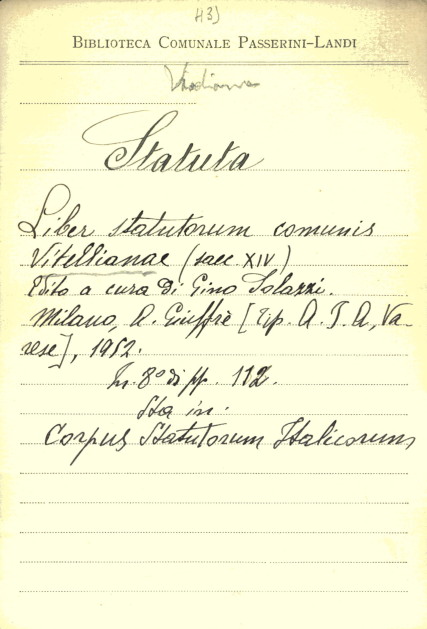 43)
BIBLIOTECA COMUNALE PASSERINI-LANDI
Viadana
Statuta
Liber statutorum comunis
Vitellianae (saec XIV)
Edito a cura di Gino Solazzi.
Milano, A. Giuffrè [Tip. A. T. A, Va-
rese], 1952.
In. 8º di pp. 112.
Sta in:
Corpus Statutorum Italicorum